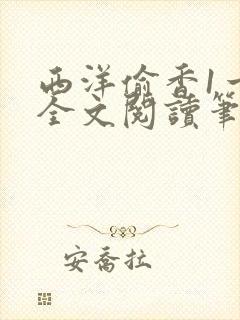 西洋偷香1一
全文閱讀筆
安喬拉